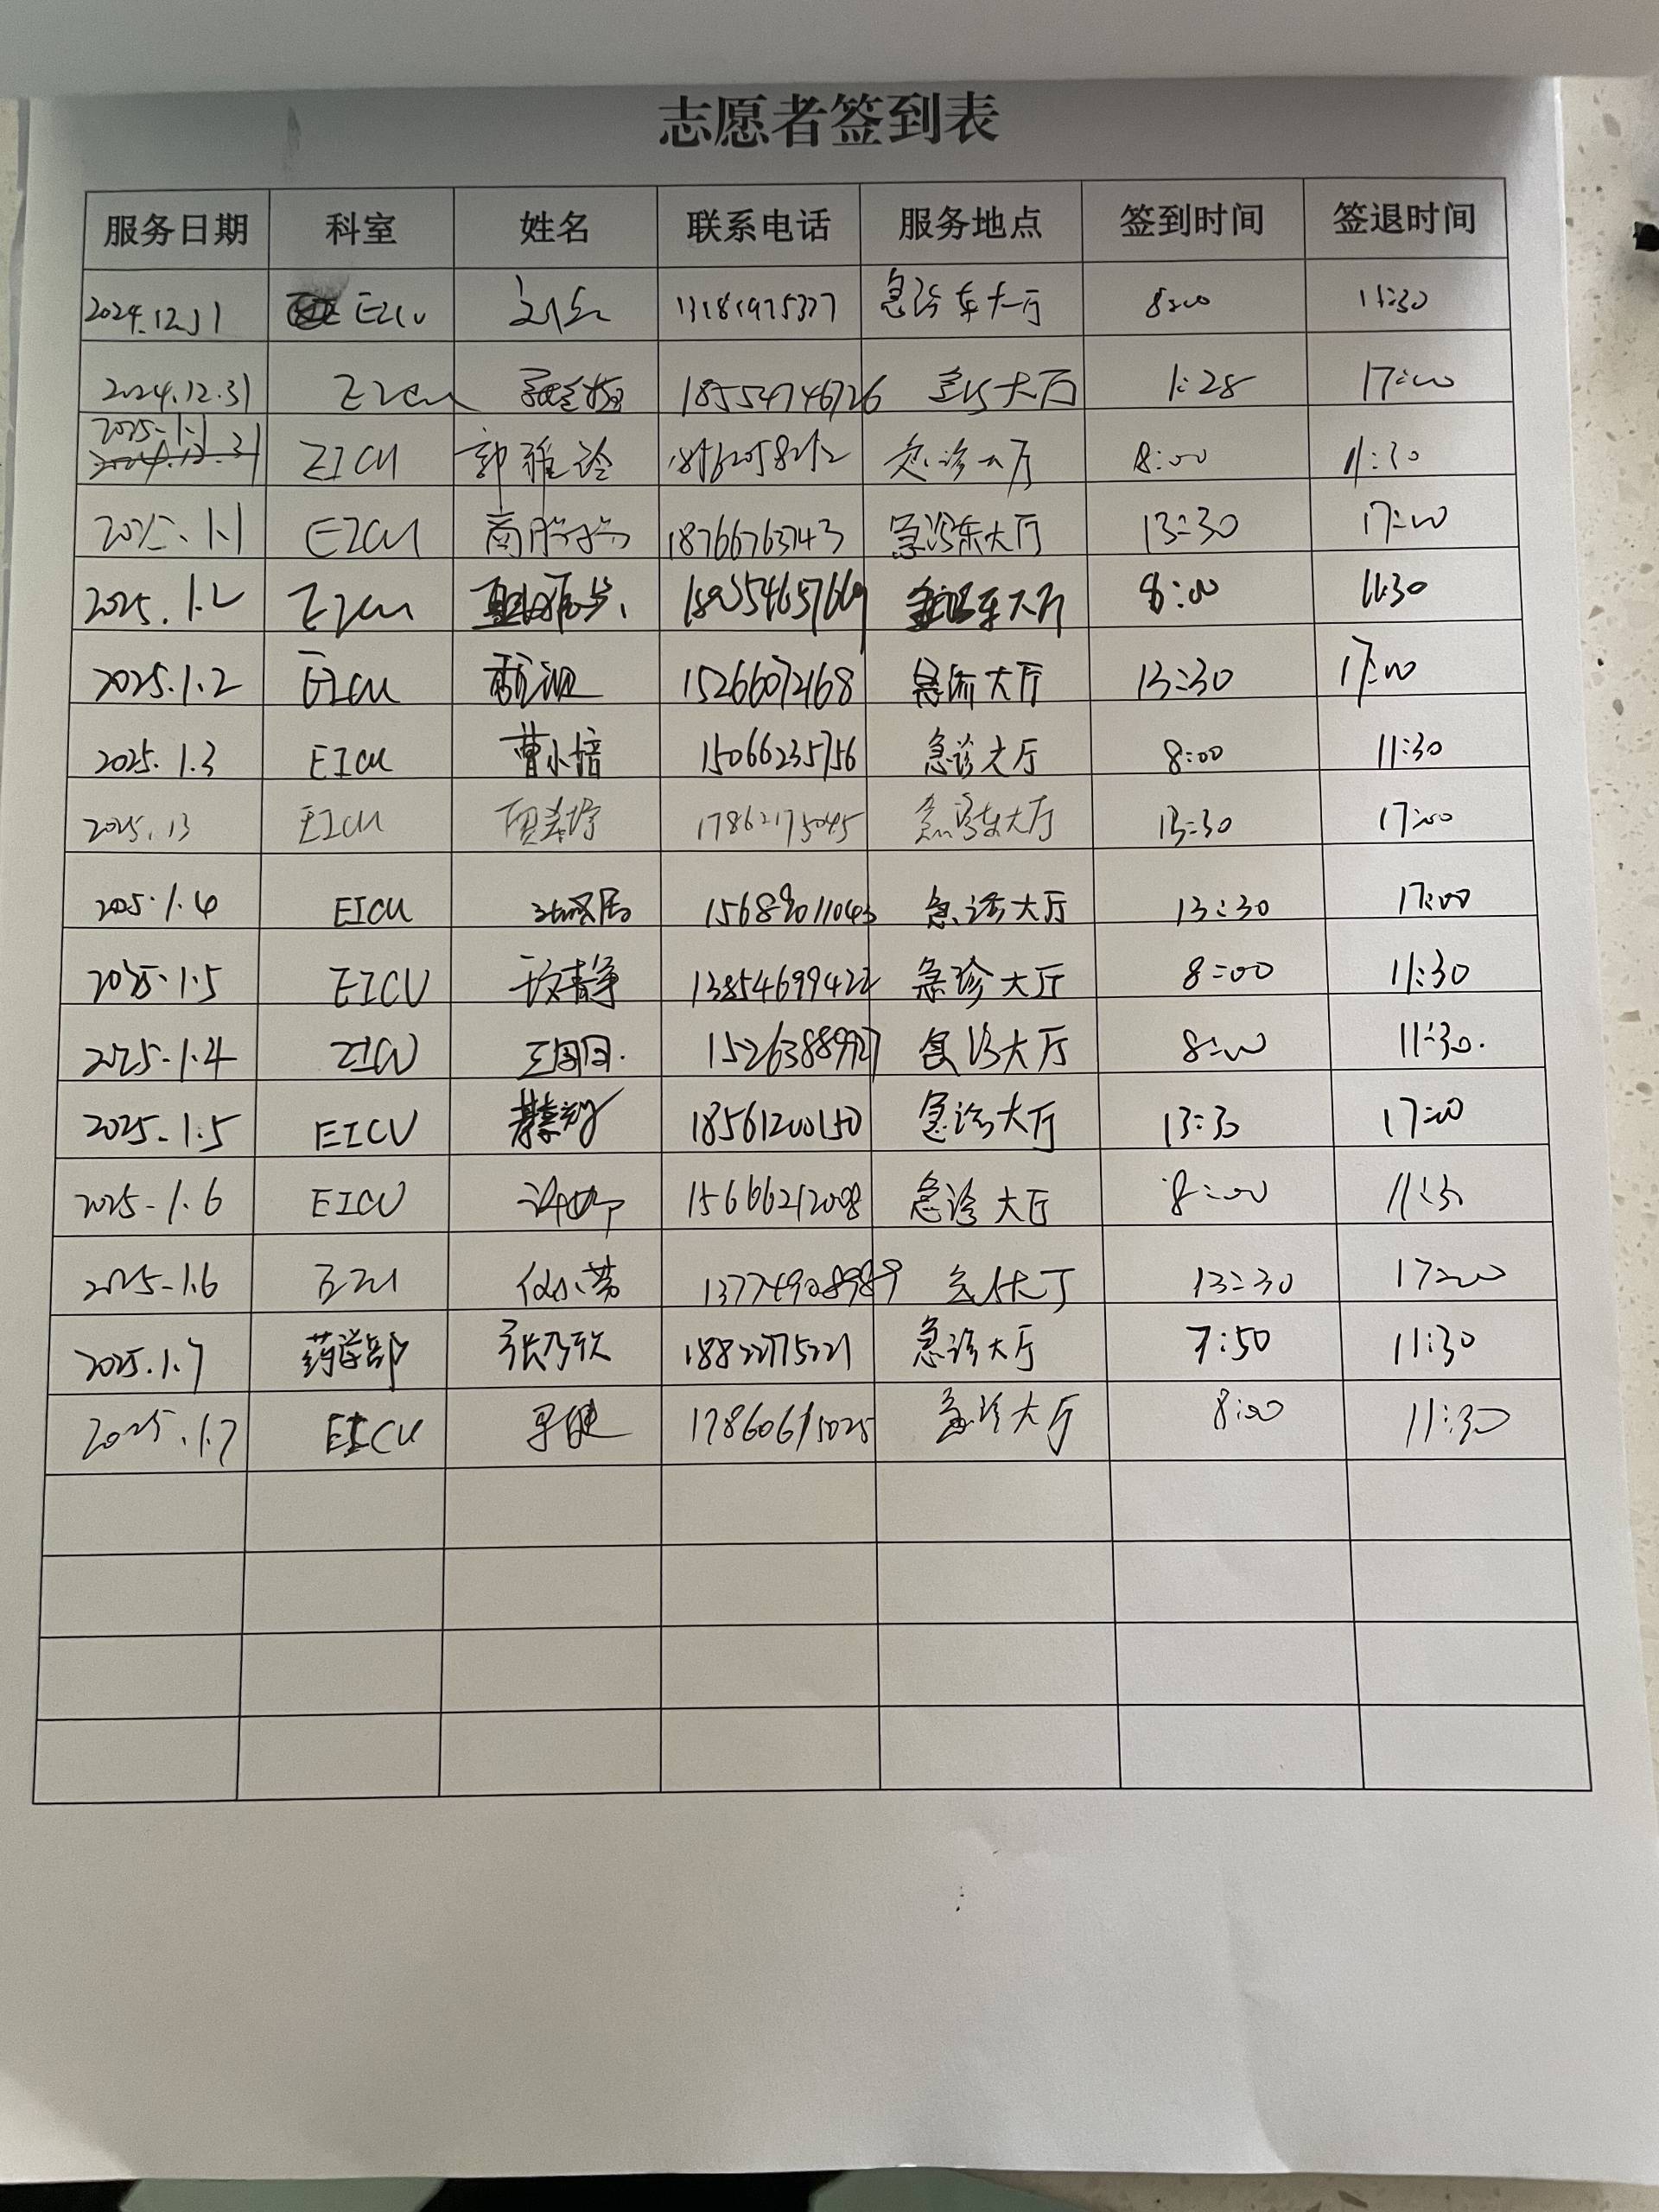 志愿者签到表
服务日期 科室 姓名 联系电话 服务地点 签到时间 签退时间
2024.12.31 EICU 13181975337 急诊东大厅 8:00 11:30
2024.12.31 EICU 18554746726 急诊大厅 1:28 17:00
2025.1.1 EICU 郭雅玲 急诊大厅 8:00 11:30
2025.1.1 EICU 18766763743 急诊东大厅 13:30 17:00
2025.1.2 EICU 急诊东大厅 8:00 11:30
2025.1.2 EICU 15266072168 急诊大厅 13:30 17:00
2025.1.3 EICU 曹小培 15066235756 急诊大厅 8:00 11:30
2025.1.3 EICU 17862175045 急诊东大厅 13:30 17:00
2025.1.4 EICU 急诊大厅 13:30 17:00
2025.1.5 EICU 13854699422 急诊大厅 8:00 11:30
2025.1.4 EICU 15263889927 急诊大厅 8:00 11:30.
2025.1.5 EICU 18561200150 急诊大厅 13:30 17:00
2025.1.6 EICU 15666212008 急诊大厅 8:00 11:30
2025.1.6 13774908989 13:30 17:00
2025.1.7 药学部 张乃欣 18822775221 急诊大厅 7:50 11:30
2025.1.7 EICU 17860615025 急诊大厅 8:00 11:30